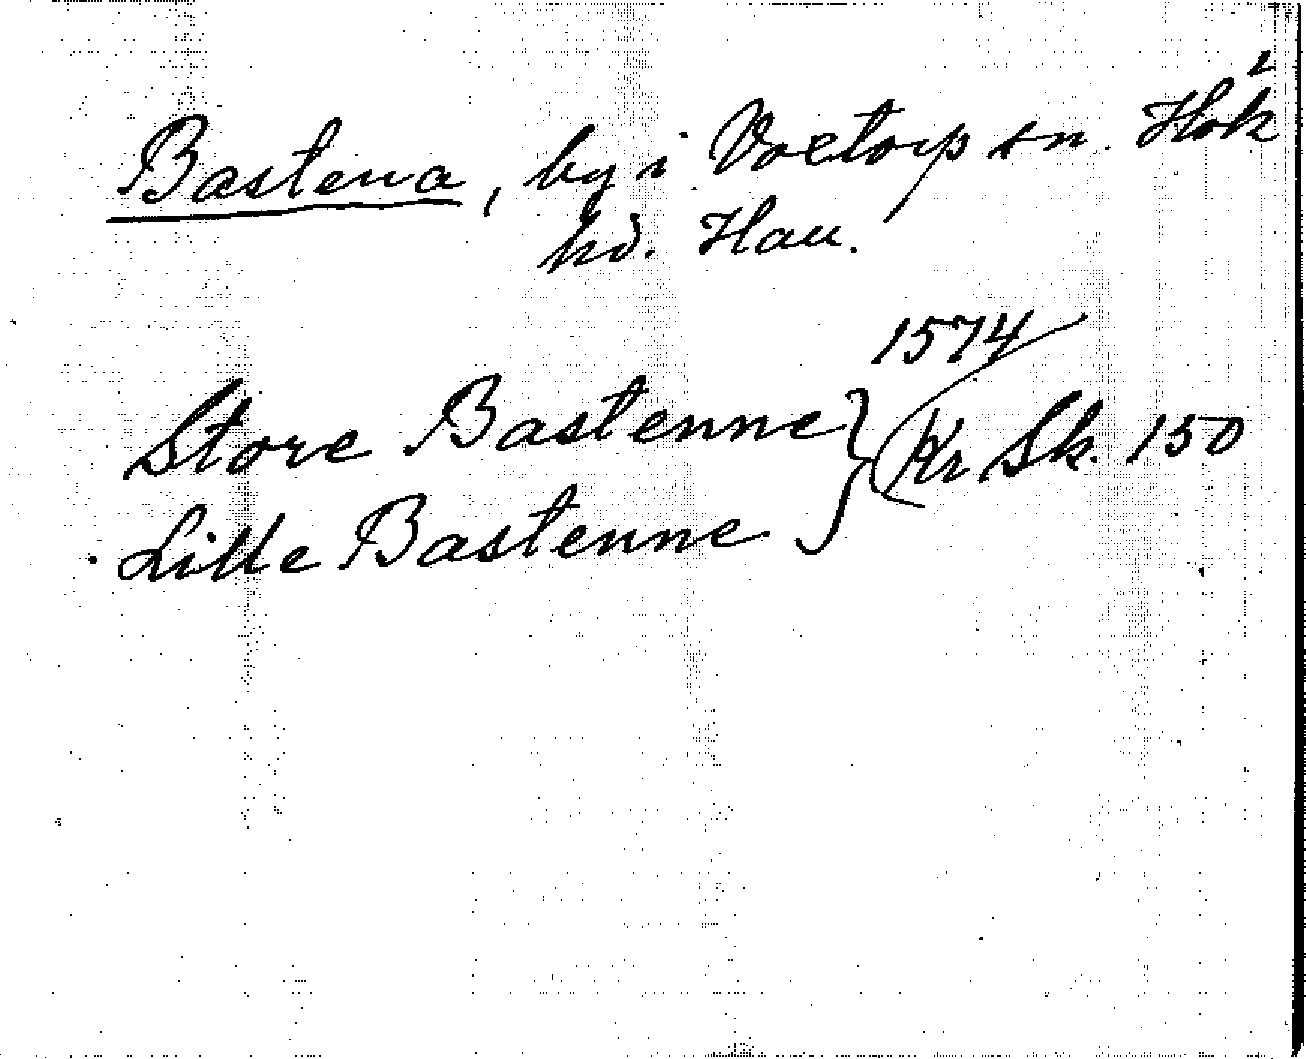 Bastena, by i Voxtorp sn. Hök 2
hd. Hall.
1574
Store Bastenne } Kr Sk. 150
Lille Bastenne